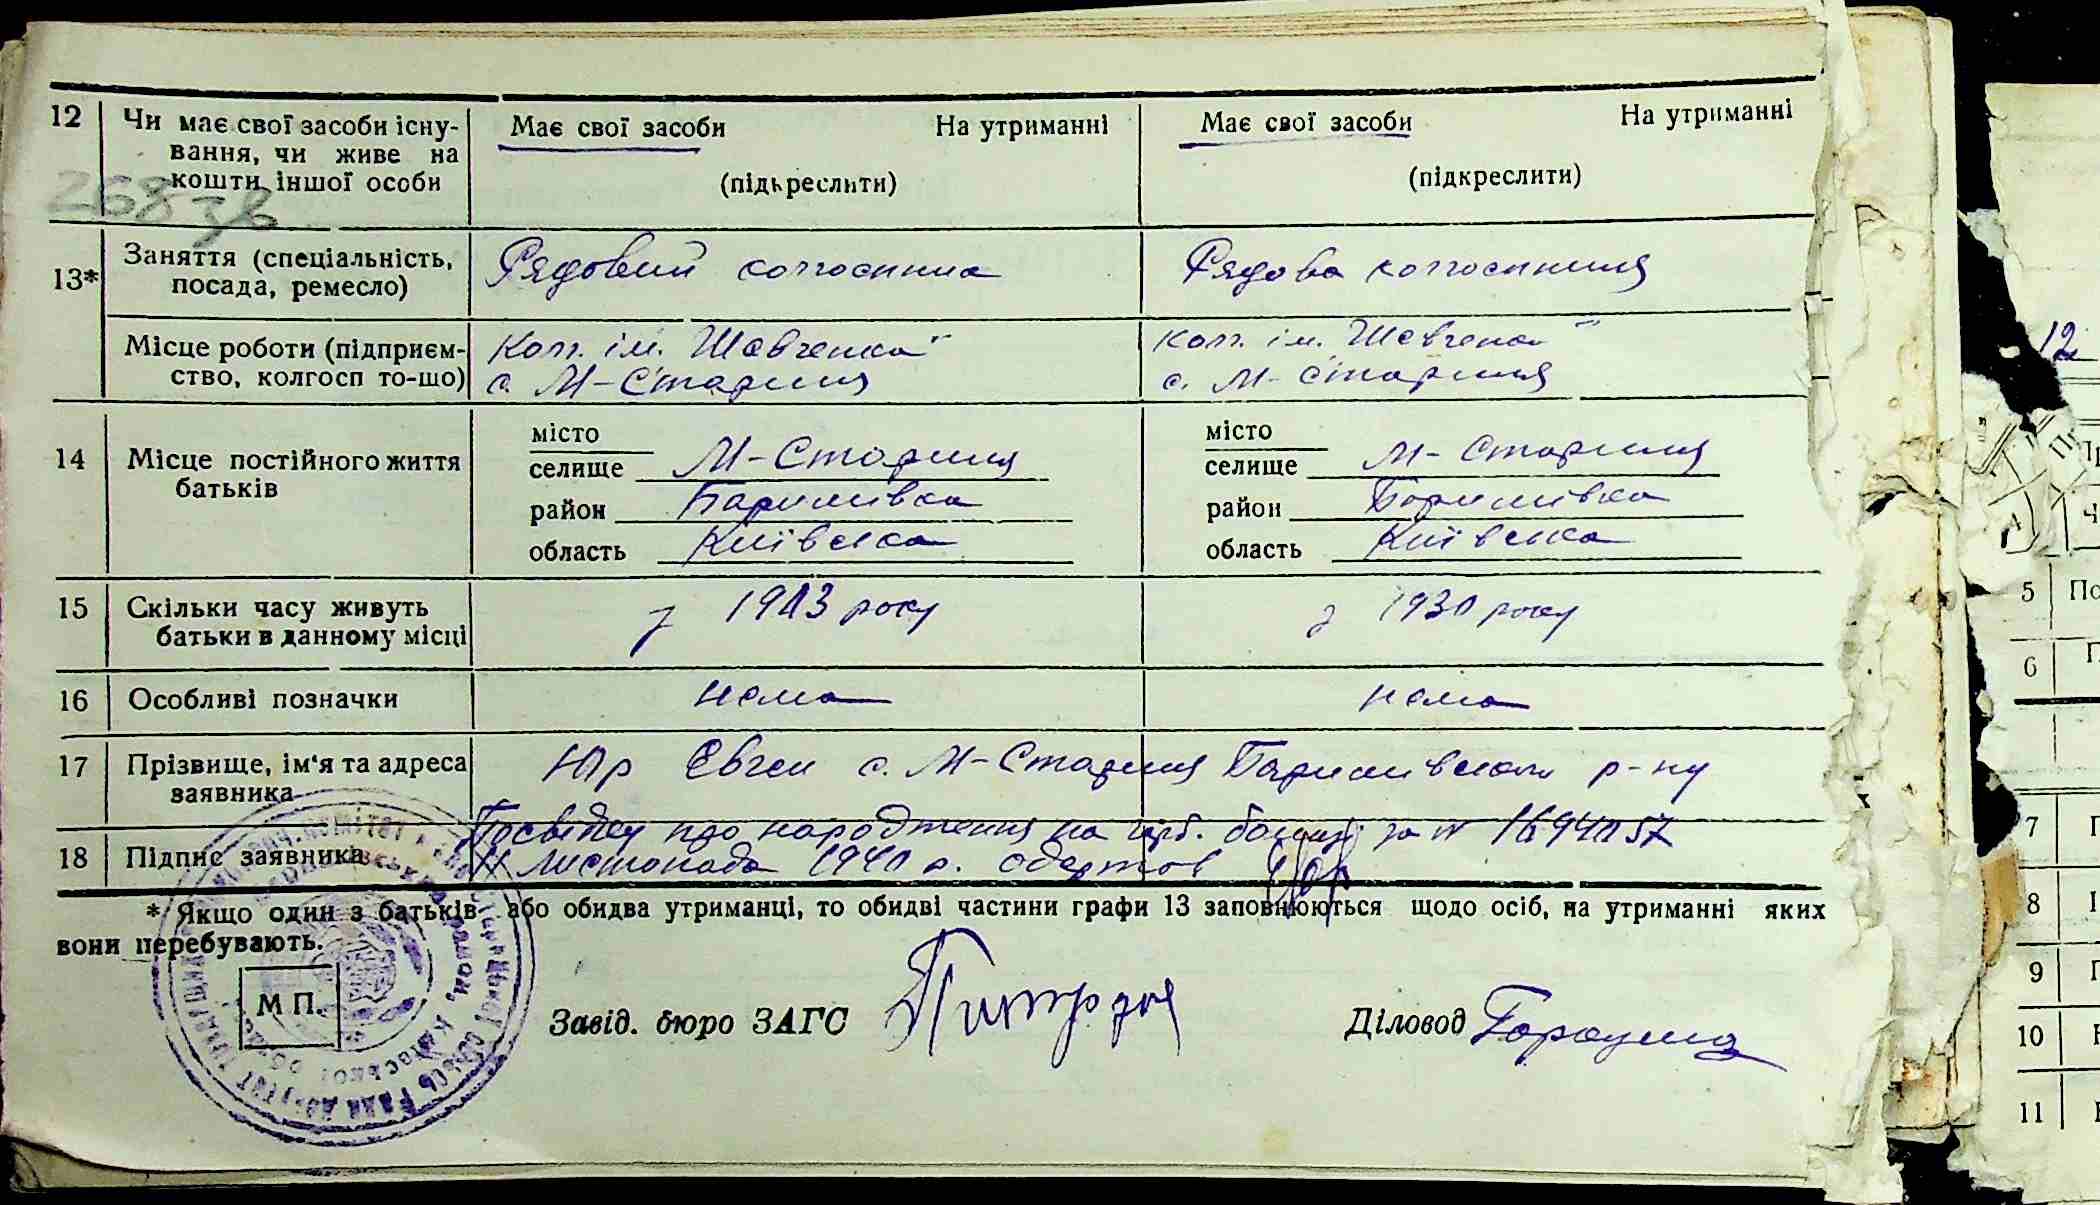 12 Чи має свої засоби існу- Має свої засоби На утриманні Має свої засоби На утриманні
вання, чи живе на
кошти іншої особи (підкреслити) (підкреслити)
268
13* Заняття (спеціальність, Рядовий колгоспник Рядова колгоспниця
посада, ремесло)
Місце роботи (підприєм- Колг. ім. Шевченка" Колг. ім. Шевченка"
ство, колгосп то-що) с. М-Стариця с. М-Стариця
14 Місце постійного життя місто місто
батьків селище М-Стариця селище М-Стариця
район Баришівка район Баришівка
область Київська область Київська
15 Скільки часу живуть з 1913 року з 1930 року
батьки в данному місці
16 Особливі позначки нема нема
17 Прізвище, ім'я та адреса Юр Євген с. М-Стариця Баришівського р-ну
заявника
Посвідку про народження на за № 1694057
18 Підпис заявника 11 листопада 1940 р. одержав
* Якщо один з батьків або обидва утриманці, то обидві частини графи 13 заповнюються щодо осіб, на утриманні яких
вони перебувають.
М П.
Завід. бюро ЗАГС Діловод
12
5 По
6 П
7 П
8
9 П
10
11